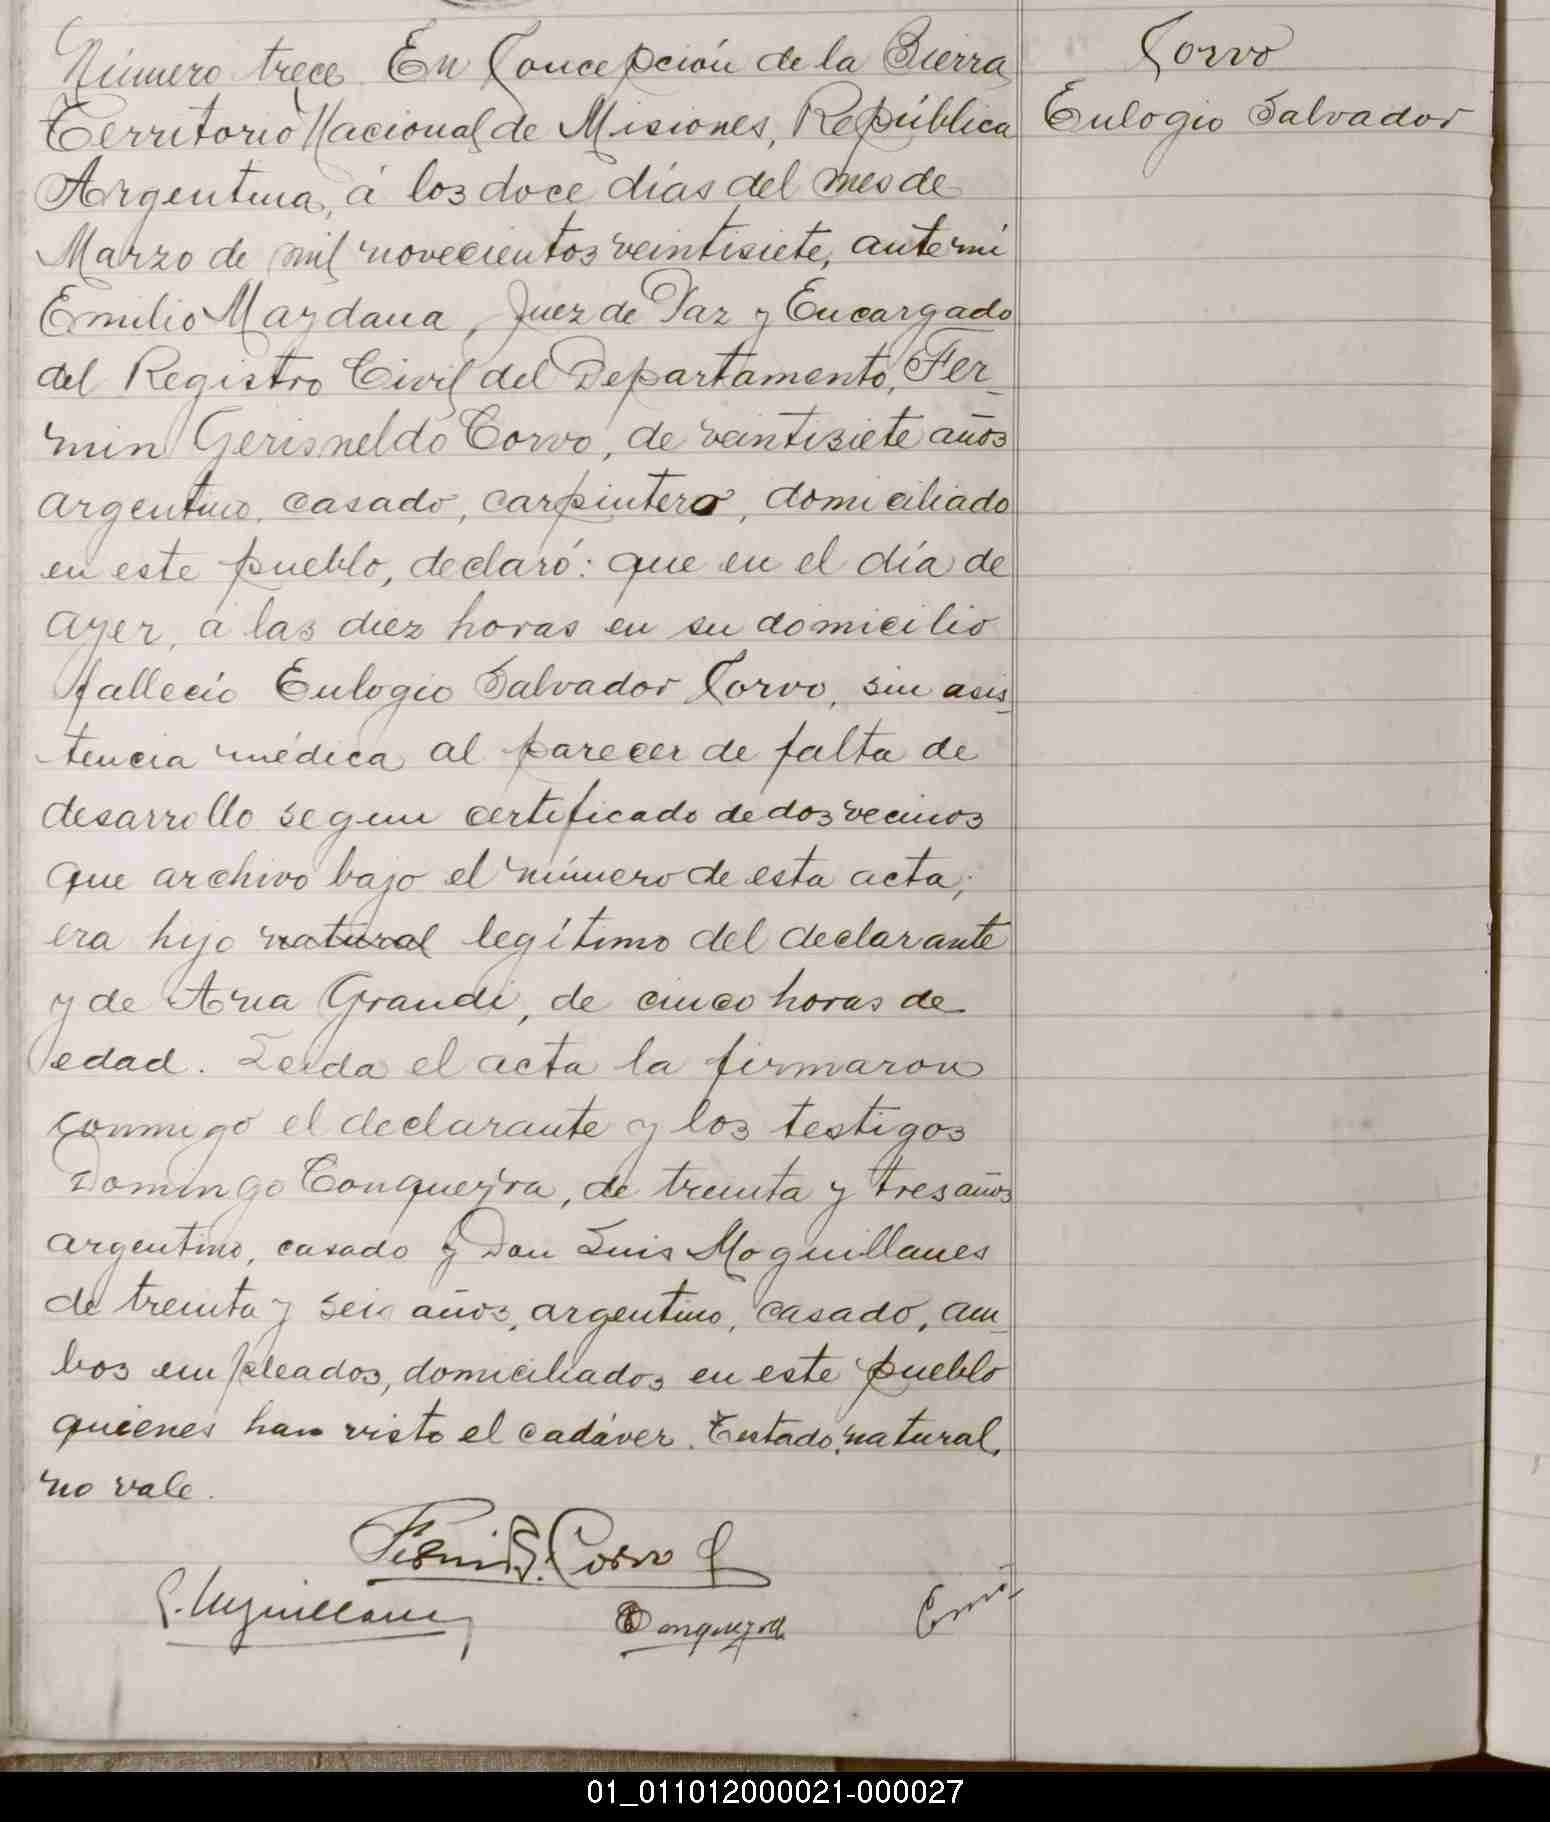 Número trece. En Concepción de la Sierra
Corvo
Territorio Nacional de Misiones, República
Eulogio Salvador
Argentina, á los doce días del mes de
Marzo de mil novecientos veintisiete, ante mi
Emilio Maydana, Juez de Paz y Encargado
del Registro Civil del Departamento, Fer-
min Gerisneldo Corvo, de veintisiete años
argentino, casado, carpintero, domiciliado
en este pueblo, declaró: que en el día de
ayer, á las diez horas en su domicilio
falleció Eulogio Salvador Corvo, sin asis-
tencia médica al parecer de falta de
desarrollo segun certificado de dos vecinos
que archivo bajo el número de esta acta;
era hijo natural legítimo del declarante
y de Ana Grandi, de cinco horas de
edad. Leida el acta la firmaron
conmigo el declarante y los testigos
Domingo Conqueyra, de treinta y tres años
argentino, casado y Don Luis Moguillanes
de treinta y seis años, argentino, casado, am-
bos empleados, domiciliados en este pueblo
quienes han visto el cadáver. Testado, natural,
no vale.
Fermin G. Corvo
Conqueyra
01_011012000021-000027